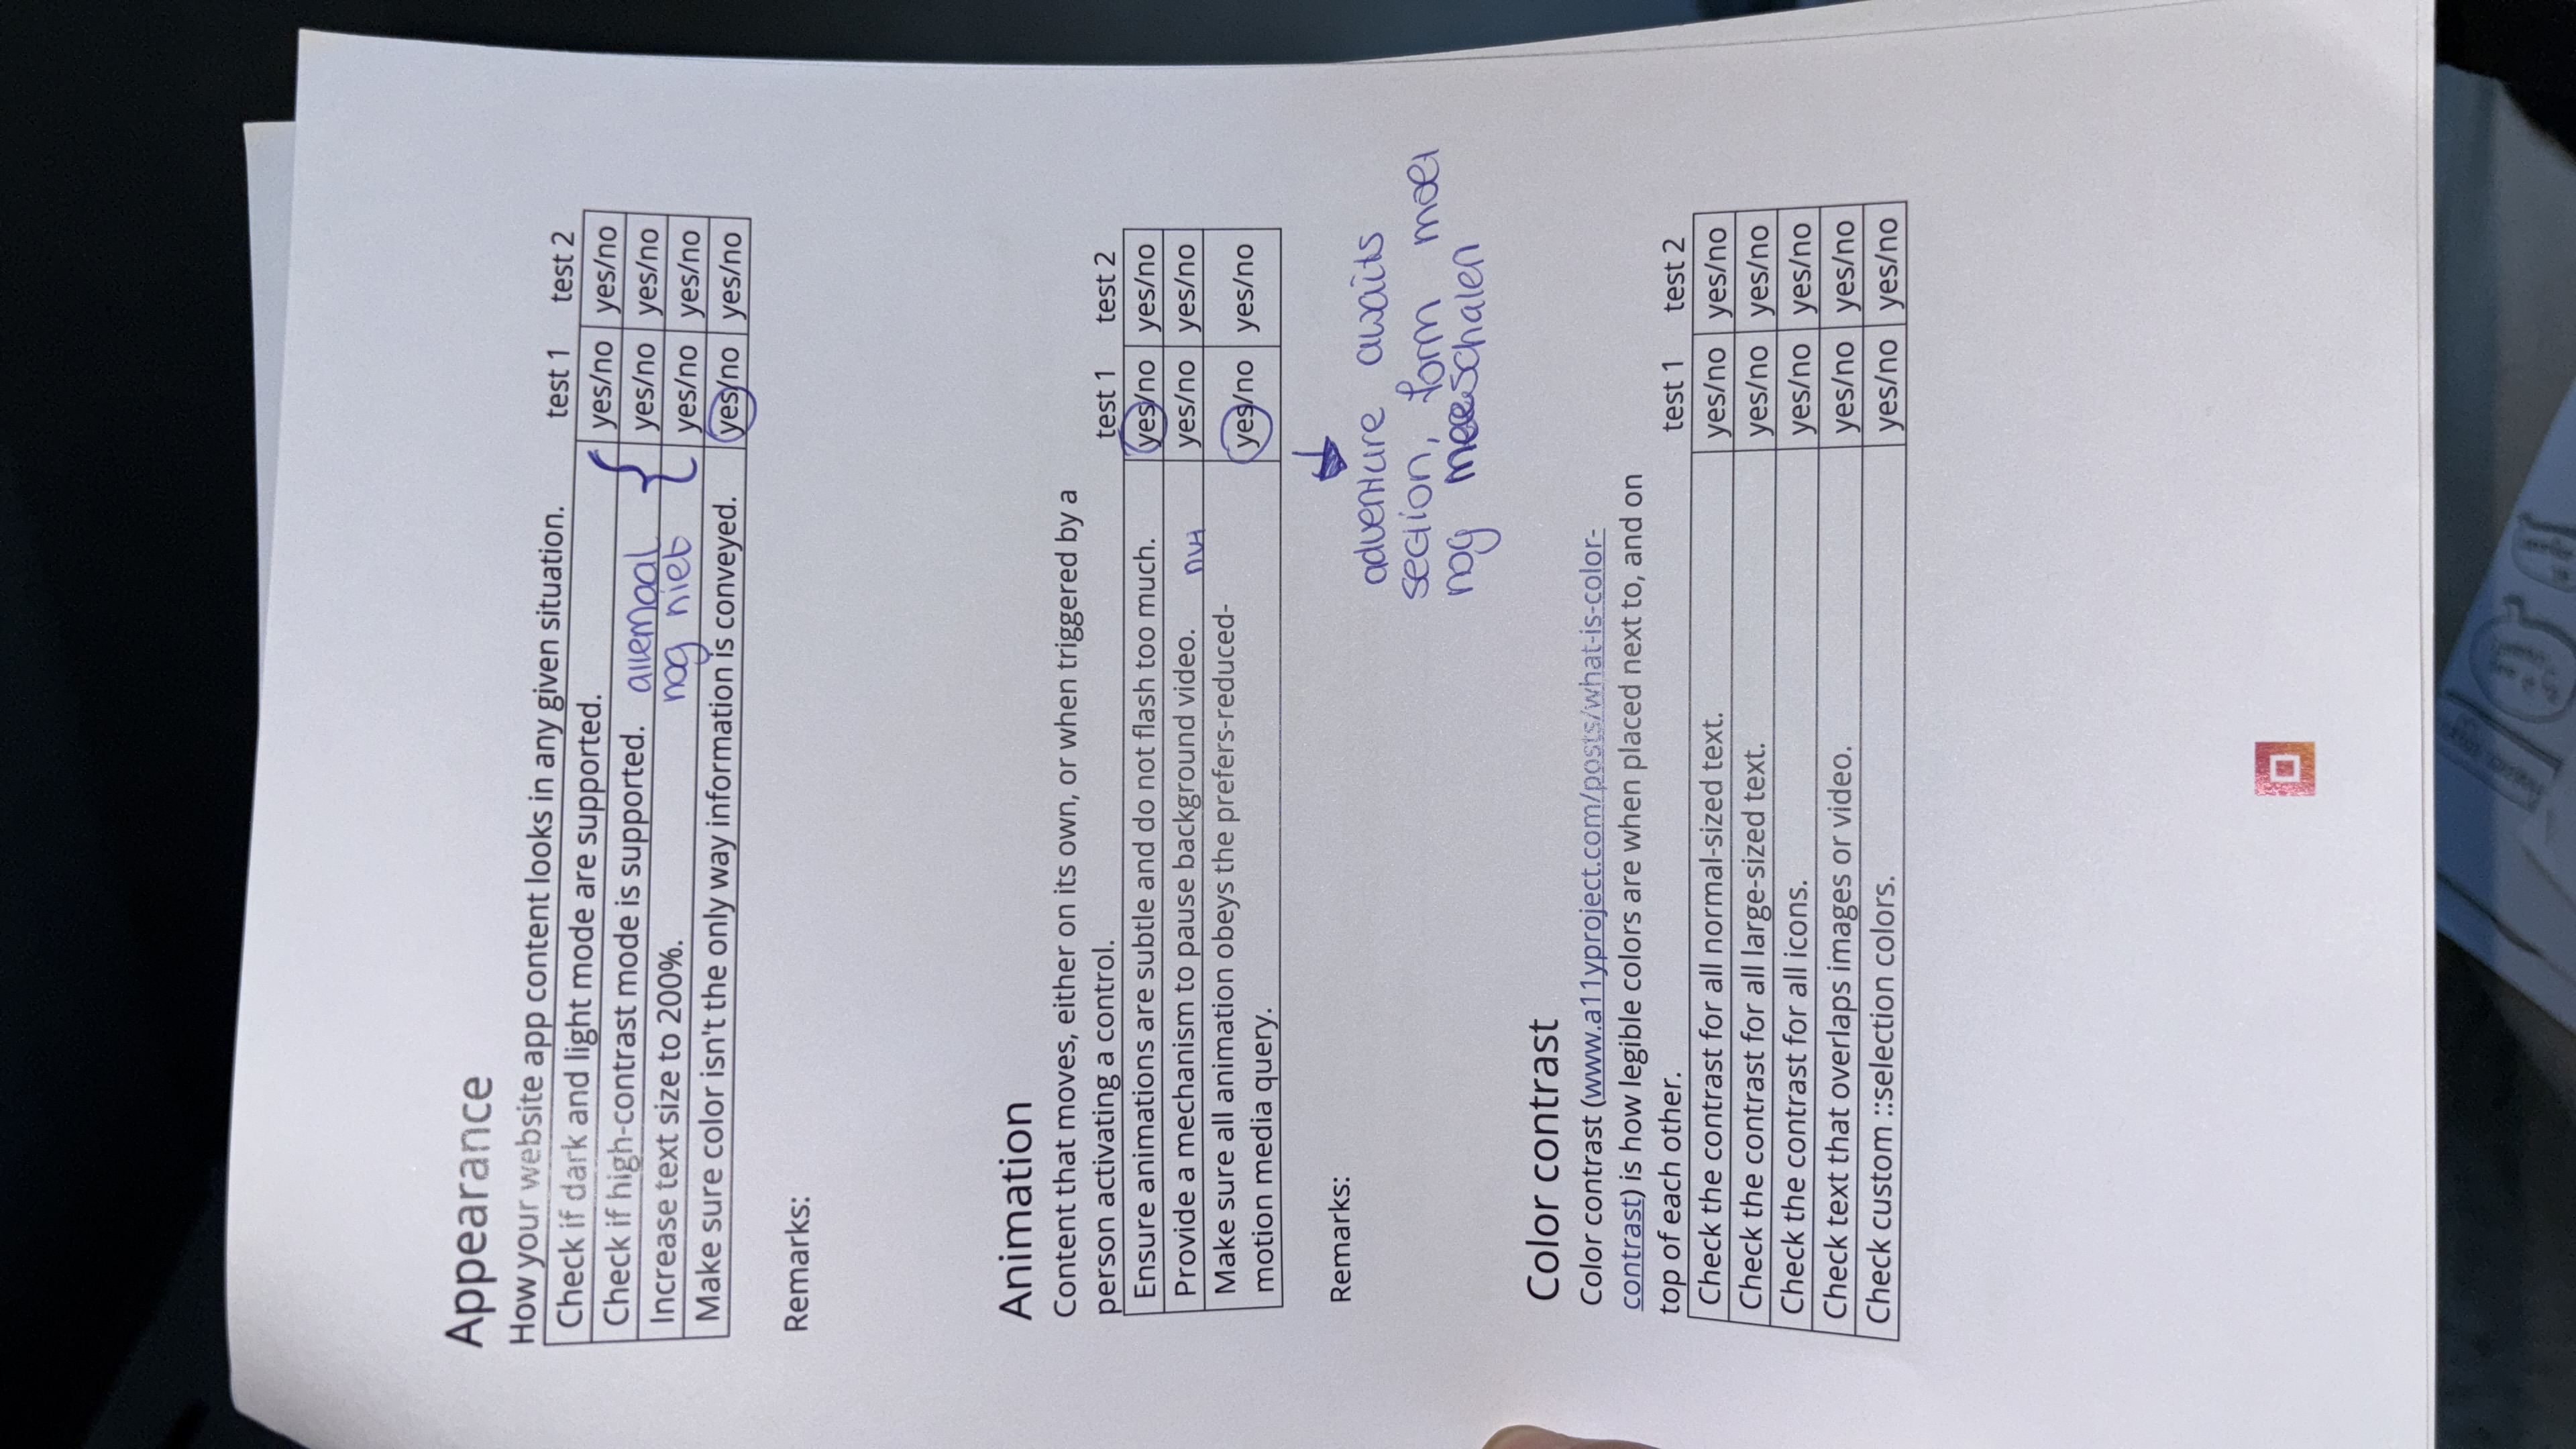 Appearance
How your website app content looks in any given situation. test 1 test 2
Check if dark and light mode are supported. yes/no yes/no
Check if high-contrast mode is supported. allemaal yes/no yes/no
Increase text size to 200%. nog niet yes/no yes/no
Make sure color isn't the only way information is conveyed. yes/no yes/no
Remarks:
Animation
Content that moves, either on its own, or when triggered by a
person activating a control. test 1 test 2
Ensure animations are subtle and do not flash too much. yes/no yes/no
Provide a mechanism to pause background video. yes/no yes/no
Make sure all animation obeys the prefers-reduced-
motion media query. yes/no yes/no
Remarks:
adventure awaits
section, form moet
nog meeschalen
Color contrast
Color contrast (www.a11yproject.com/posts/what-is-color-
contrast) is how legible colors are when placed next to, and on
top of each other. test 1 test 2
Check the contrast for all normal-sized text. yes/no yes/no
Check the contrast for all large-sized text. yes/no yes/no
Check the contrast for all icons. yes/no yes/no
Check text that overlaps images or video. yes/no yes/no
Check custom ::selection colors. yes/no yes/no